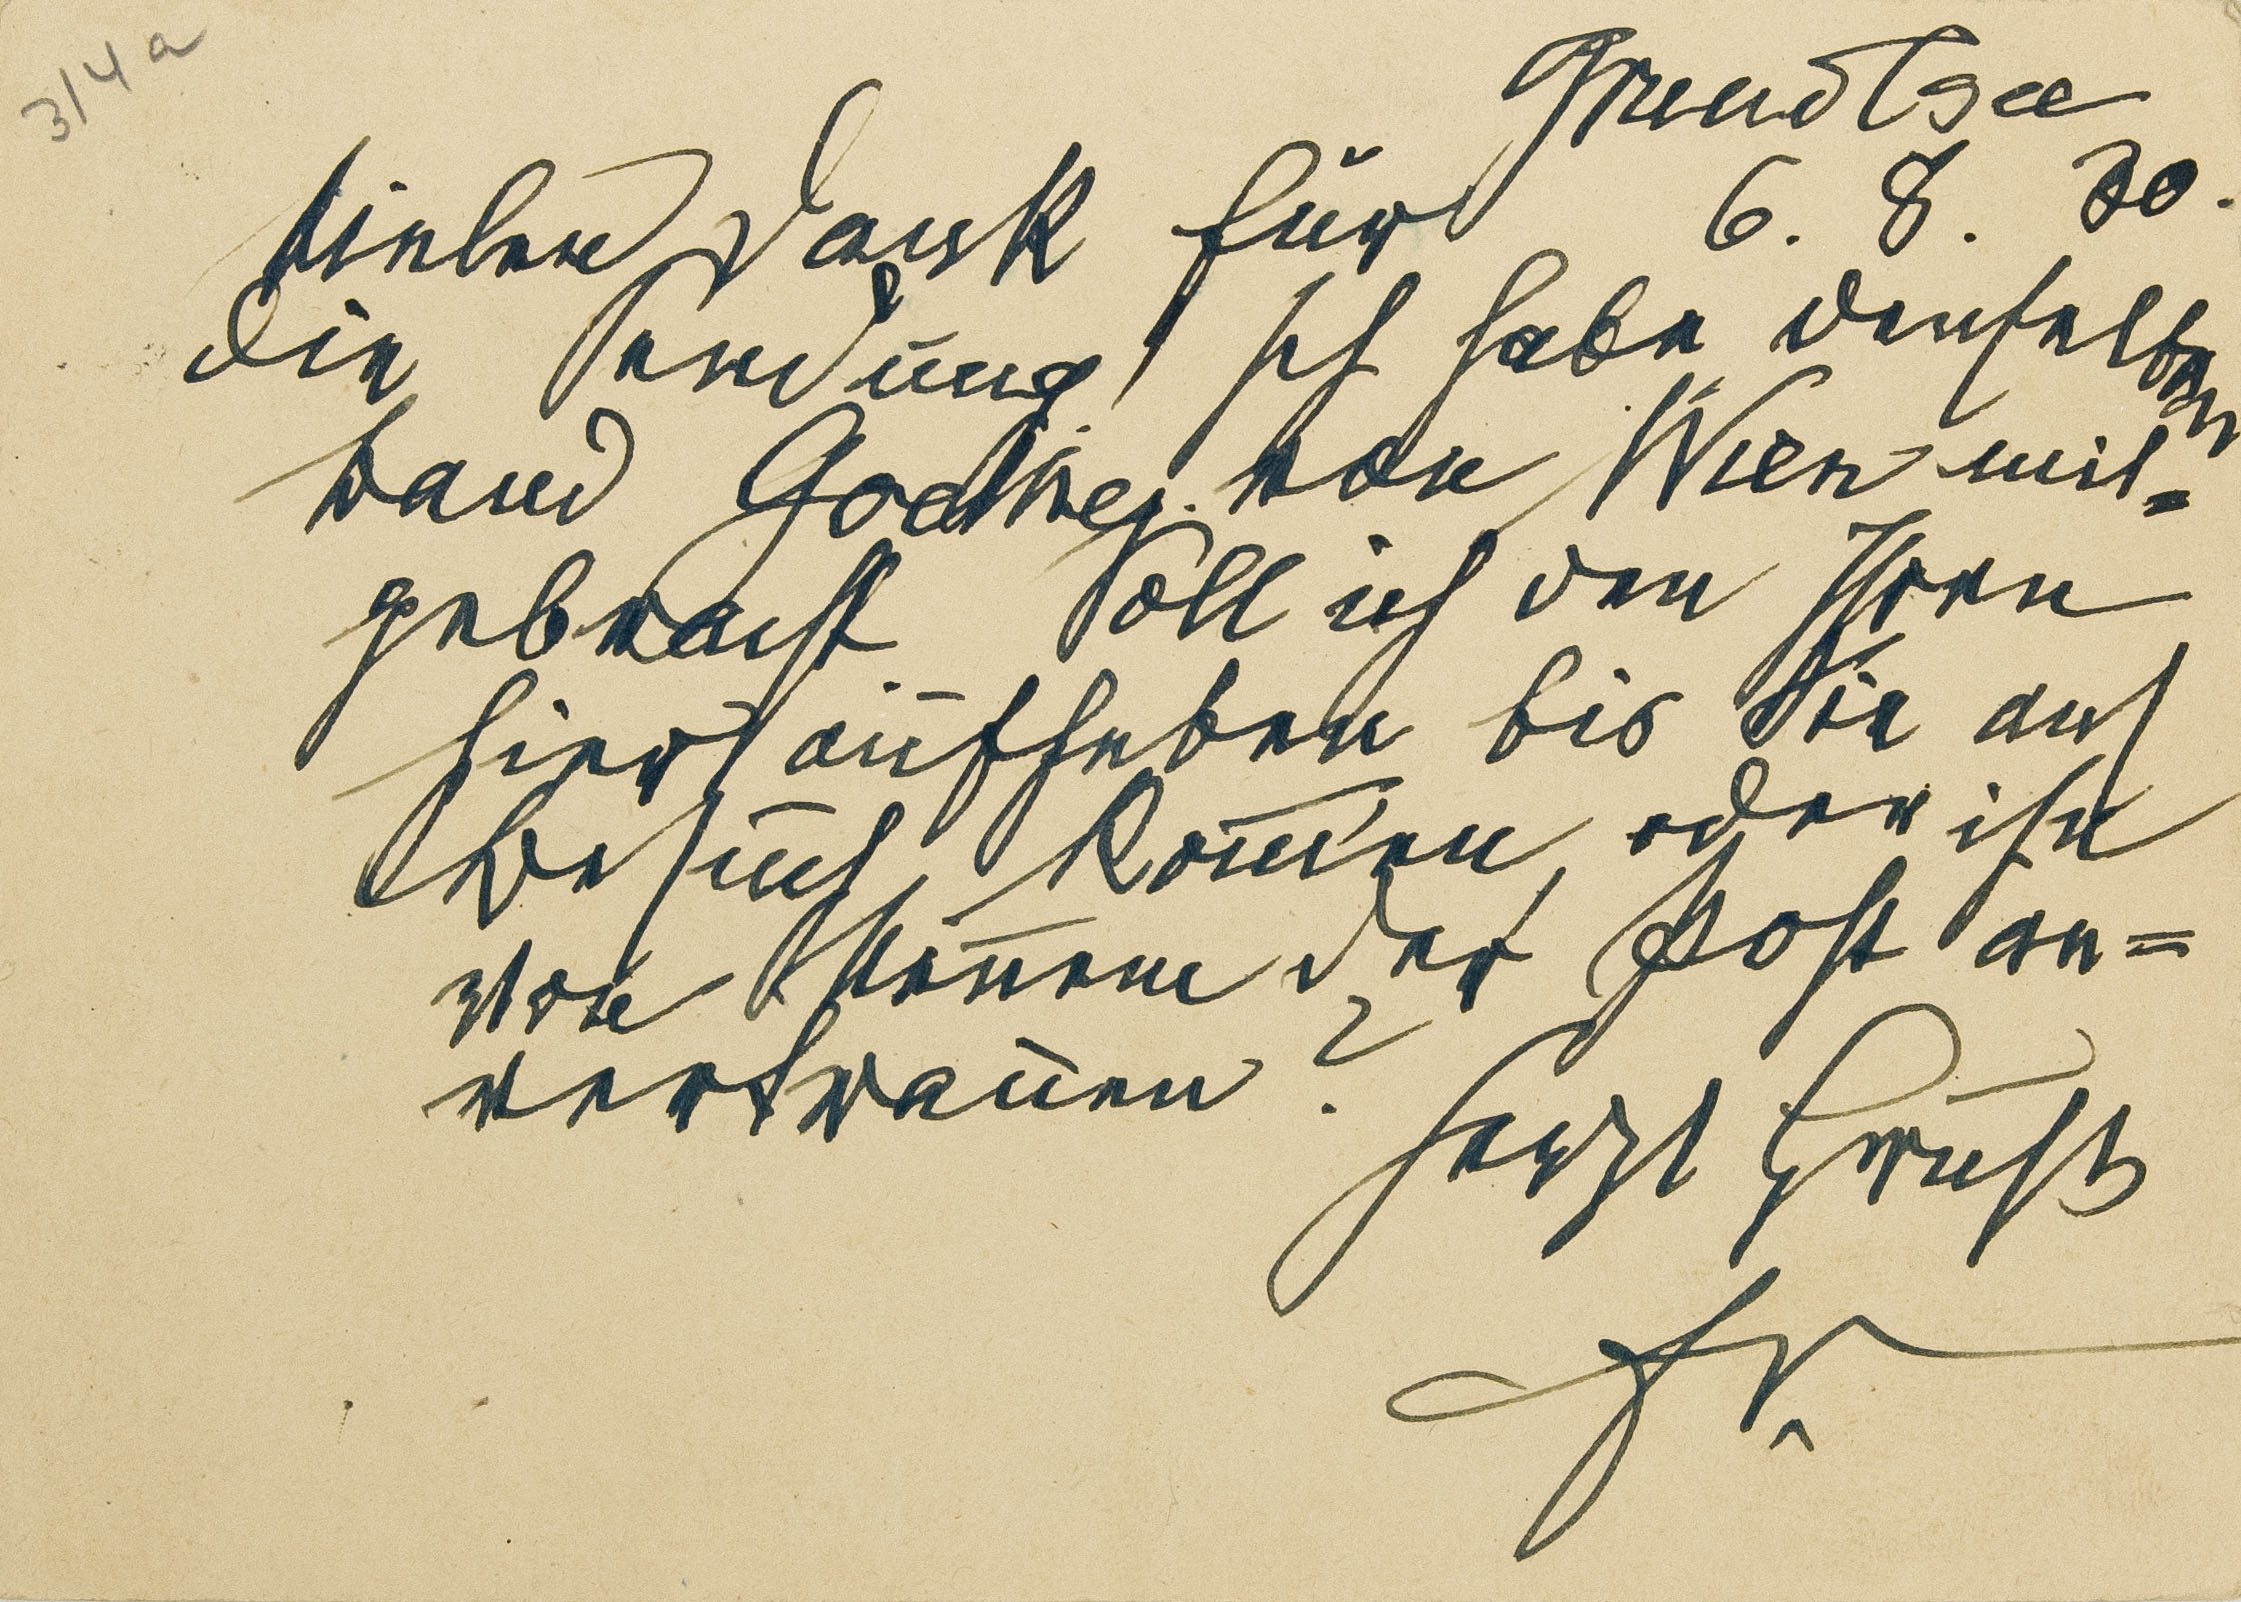 3/4 a
Grundlsee
6. 8. 30.
Lieben Dank für
die Sendung! Ich habe denselben
Band Goethes von Wien mit=
gebracht. Soll ich den Ihren
hier aufheben bis Sie auf
Besuch kom̅en, oder ihn
von Neuem der Post an=
vertrauen?
Herzl Gruß